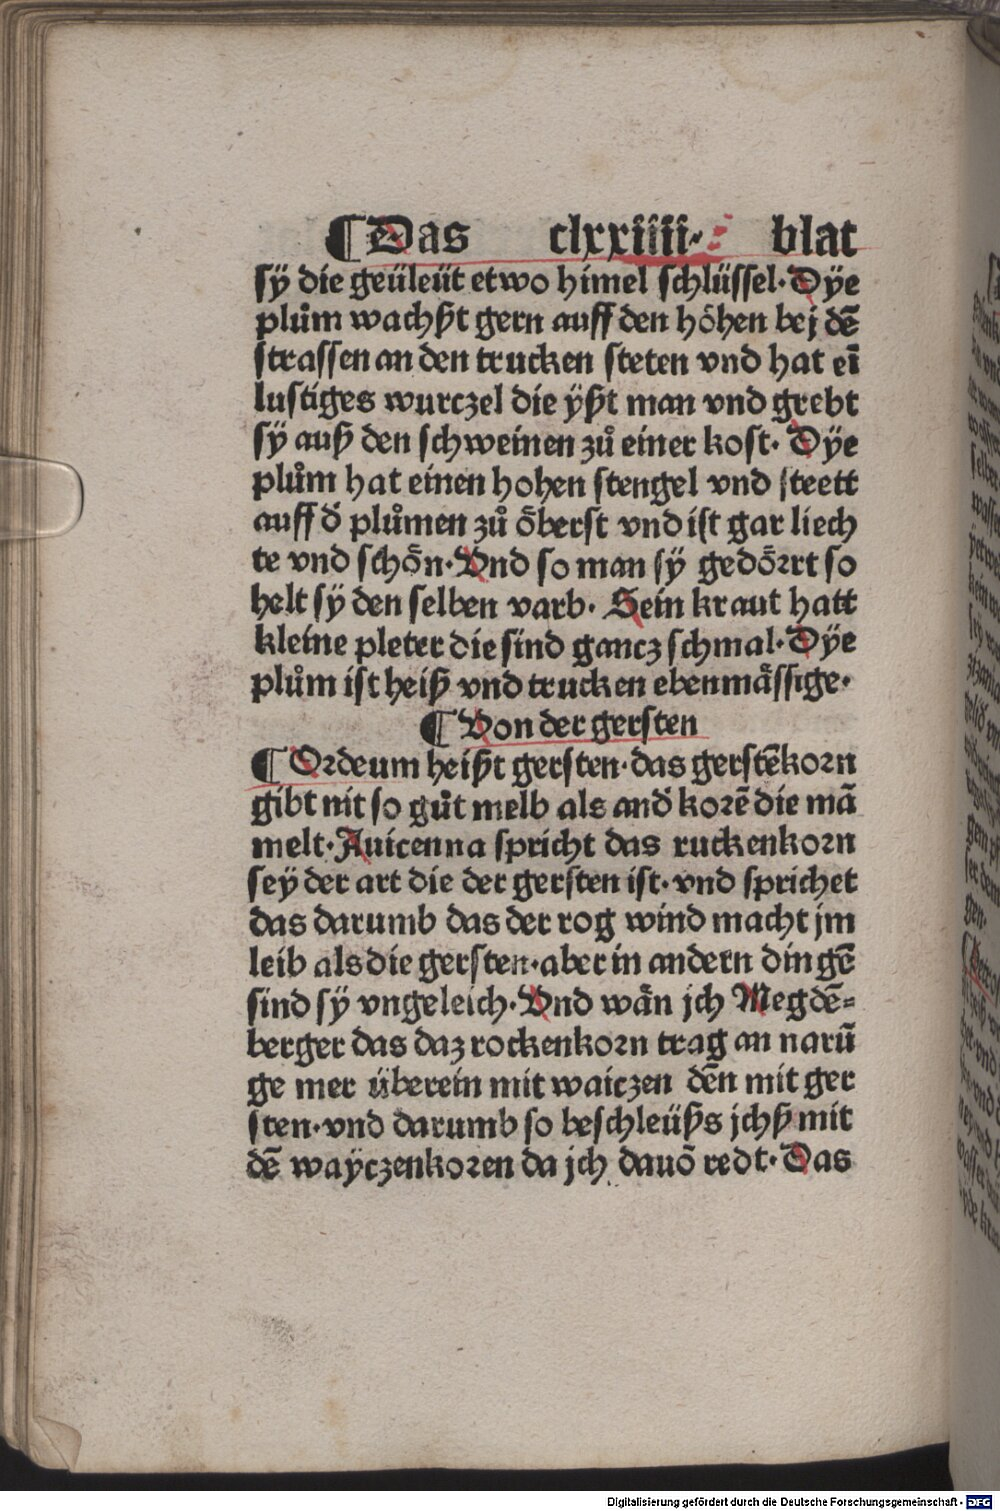 ¶ Das clxxiiii· blat
sÿ die geüleüt etwo himel schlüssel· Dÿe
plům wachßt gern auff den höhen bej dē
strassen an den trucken steten vnd hat eī
lustiges wurczel die ÿßt man vnd grebt
sÿ auß den schweinen zů einer kost· Dÿe
plům hat einen hohen stengel vnd steett
auff d̄ plůmen zů öberst vnd ist gar liech
te vnd schön· Vnd so man sÿ gedörrt so
helt sÿ den selben varb· Sein kraut hatt
kleine pleter die sind gancz schmal· Dÿe
plům ist heiß vnd trucken ebenmässige·
¶ Von der gersten
¶ Ordeum heißt gersten· das gerstēkorn
gibt nit so gůt melb als and̄ korē die mā
melt· Auicenna spricht das ruckenkorn
seÿ der art die der gersten ist· vnd sprichet
das darumb das der rog wind macht jm
leib als die gersten· aber in andern dingē
sind sÿ vngeleich· Vnd wän jch Megdē-
berger das daz rockenkorn trag an narū
ge mer überein mit waiczen dēn mit ger
sten· vnd darumb so beschleüßs jchß mit
dē waÿczenkoren da jch dauō redt· Das
Digitalisierung gefördert durch die Deutsche Forschungsgemeinschaft - DFG